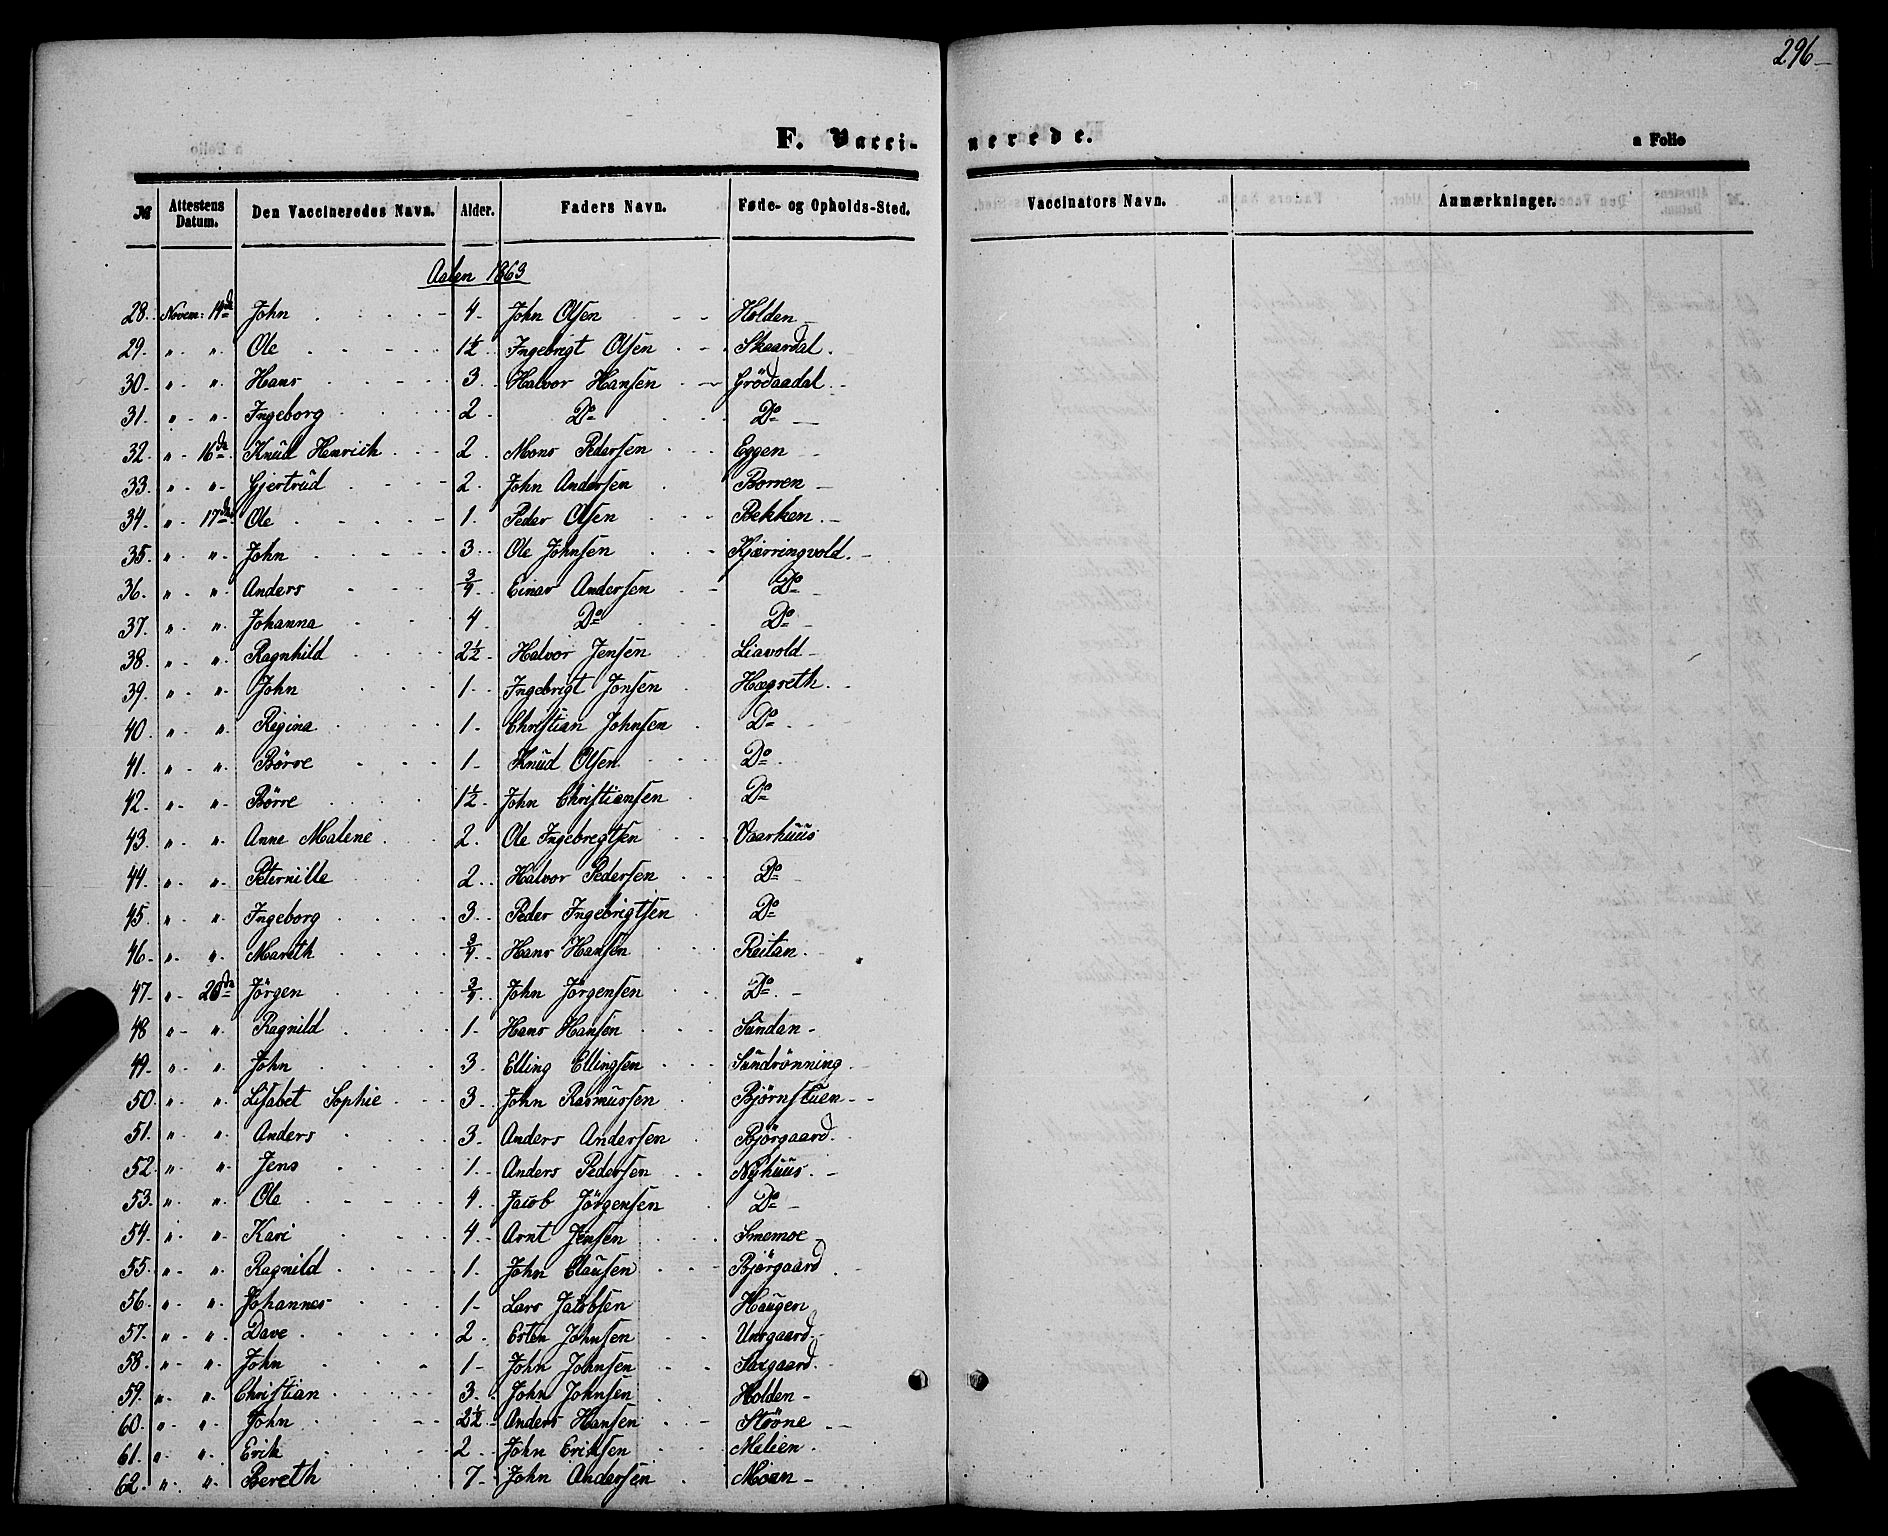 296
F. Vaccinerede. a Folio
№ Attestens Datum. Den Vaccineredes Navn. Alder. Faders Navn. Føde- og Opholds-Sted. Vaccinators Navn. Anmærkninger.
Aalen 1863
28. Novem: 14de John 4 John Olsen Holden
29. " " Ole 1½ Ingebrigt Olsen Skaardal
30. " " Hans 3 Halvor Hansen Grödaadal
31. " " Ingeborg 2 Do Do
32. " 16de Knud Henrich 2 Mons Pedersen Eggen
33. " " Gjertrud 2 John Andersen Borren
34. " 17de Ole 1 Peder Olsen Bekken
35. " " John 3 Ole Johnsen Kjærringvold
36. " " Anders ¾ Einar Andersen Do
37. " " Johanna 4 Do Do
38. " " Ragnhild 2½ Halvor Jensen Liavold
39. " " John 1 Ingebrigt Jonsen Hægreth
40. " " Regina 1 Christian Johnsen Do
41. " " Börre 1 Knud Olsen Do
42. " " Börre 1½ John Christiansen Do
43. " " Anne Malene 2 Ole Ingebregtsen Vaarhuus
44. " " Peternille 2 Halvor Pedersen Do
45. " " Ingeborg 3 Peder Ingebrigtsen Do
46. " " Mareth ¾ Hans Hansen Reitan
47. " 20de Jörgen ¾ John Jörgensen Do
48 " " Ragnild 1 Hans Hansen Sundan
49. " " John 3 Elling Ellingsen Sundrønning
50. " " Lisabet Sophie 3 John Rasmussen Bjørnstuen
51. " " Anders 3 Anders Andersen Bjørgaard
52 " " Jens 1 Anders Pedersen Nyhuus
53. " " Ole 4 Jacob Jörgensen Do
54. " " Kari 4 Arnt Jensen Smemoe
55. " " Ragnild 1 John Clausen Bjørgaard
56. " " Johannes 1 Lars Jacobsen Haugen
57. " " Dave 2 Esten Johnsen Unsgaard
58. " " John 1 John Johnsen Saxgaard
59. " " Christian 3 John Johnsen Holden
60. " " John 2½ Anders Hansen Støne
61. " " Erik 2 John Eriksen Melien
62. " " Bereth 7 John Andersen Moan